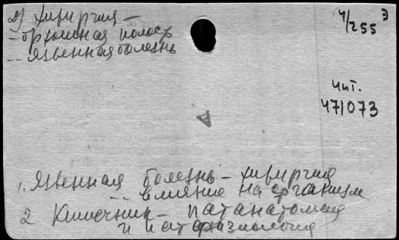 2) Хирургия –
– брюшная полость
– Язвенная болезнь
4/255 Э
Чит.
47/073
1. Язвенная болезнь – хирургия
– влияние на организм
2 Кишечник – патанатомия
и патфизиология